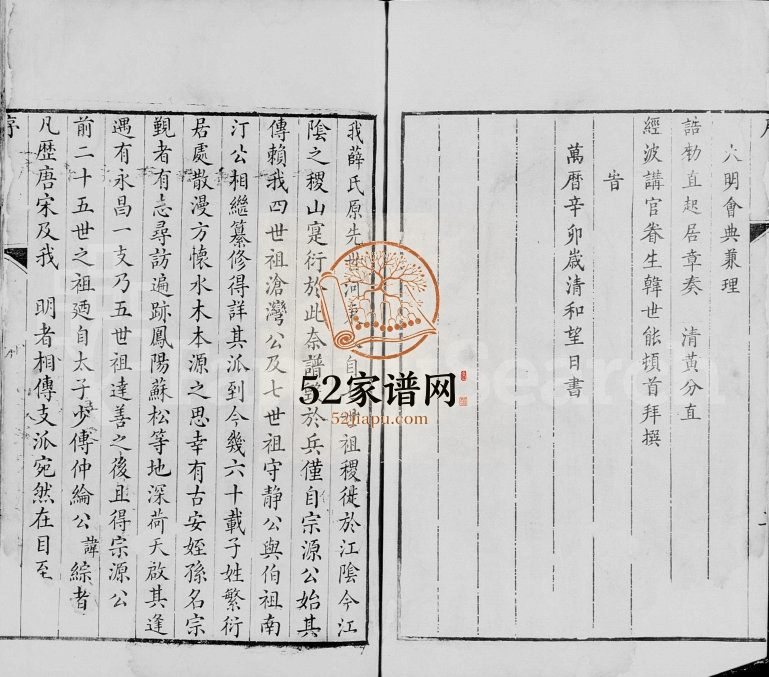 大明會典兼理
誥勑直起居章奏 清黃分直
經波講官眷生韓世能頓首拜撰
旹
萬曆辛卯歲清和望日書
我薛氏原先世河自世祖稷徙於江陰今江
陰之稷山寔衍於此奈譜於兵僅自宗源公始其
傳賴我四世祖滄灣公及七世祖守静公與伯祖南
汀公相繼纂修得詳其派到今幾六十載子姓繁衍
居處散漫方懷水木本源之思幸有古安姪孫名宗
覲者有志尋訪遍跡鳳陽蘇松等地深荷天啟其逢
遇有永昌一支乃五世祖達善之後且得宗源公
前二十五世之祖廼自太子少傳仲綸公諱綜者
凡歴唐宋及我 明者相傳支派宛然在目至
序
52家谱网
52jiapu.com